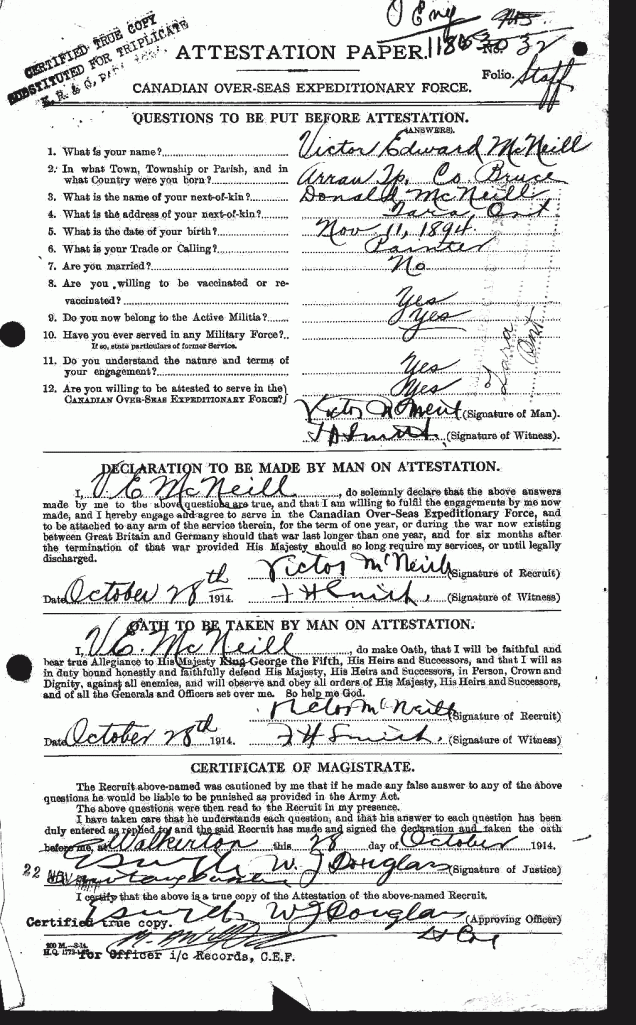 CERTIFIED TRUE COPY
SUBSTITUTED FOR TRIPLICATE
ATTESTATION PAPER.
Folio. Staff
CANADIAN OVER-SEAS EXPEDITIONARY FORCE.
QUESTIONS TO BE PUT BEFORE ATTESTATION.
(ANSWERS).
1. What is your name? Victor Edward McNeill
2. In what Town, Township or Parish, and in
what Country were you born? Arran Tp. Co. Bruce
3. What is the name of your next-of-kin? Donald McNeill
4. What is the address of your next-of-kin? Tara, Ont
5. What is the date of your birth? Nov 11, 1894
6. What is your Trade or Calling? Painter
7. Are you married? No
8. Are you willing to be vaccinated or re-
vaccinated? Yes
9. Do you now belong to the Active Militia? Yes
10. Have you ever served in any Military Force?
If so, state particulars of former Service.
11. Do you understand the nature and terms of
your engagement? Yes
12. Are you willing to be attested to serve in the
CANADIAN OVER-SEAS EXPEDITIONARY FORCE? Yes
Tara
Ont
Victor McNeill (Signature of Man).
(Signature of Witness).
DECLARATION TO BE MADE BY MAN ON ATTESTATION.
I, V E McNeill, do solemnly declare that the above answers
made by me to the above questions are true, and that I am willing to fulfil the engagements by me now
made, and I hereby engage and agree to serve in the Canadian Over-Seas Expeditionary Force, and
to be attached to any arm of the service therein, for the term of one year, or during the war now existing
between Great Britain and Germany should that war last longer than one year, and for six months after
the termination of that war provided His Majesty should so long require my services, or until legally
discharged.
Victor McNeill (Signature of Recruit)
Date October 28th 1914. F H Smith. (Signature of Witness)
OATH TO BE TAKEN BY MAN ON ATTESTATION.
I, V.E. McNeill, do make Oath, that I will be faithful and
bear true Allegiance to His Majesty King George the Fifth, His Heirs and Successors, and that I will as
in duty bound honestly and faithfully defend His Majesty, His Heirs and Successors, in Person, Crown and
Dignity, against all enemies, and will observe and obey all orders of His Majesty, His Heirs and Successors,
and of all the Generals and Officers set over me. So help me God.
Victor McNeill (Signature of Recruit)
Date October 28th 1914. F H Smith. (Signature of Witness)
CERTIFICATE OF MAGISTRATE.
The Recruit above-named was cautioned by me that if he made any false answer to any of the above
questions he would be liable to be punished as provided in the Army Act.
The above questions were then read to the Recruit in my presence.
I have taken care that he understands each question, and that his answer to each question has been
duly entered as replied to, and the said Recruit has made and signed the declaration and taken the oath
before me, at Walkerton this 28 day of October 1914.
W. J Douglas (Signature of Justice)
22
I certify that the above is a true copy of the Attestation of the above-named Recruit.
W J Douglas (Approving Officer)
Certified true copy.
Lt Col
for Officer i/c Records, C.E.F.